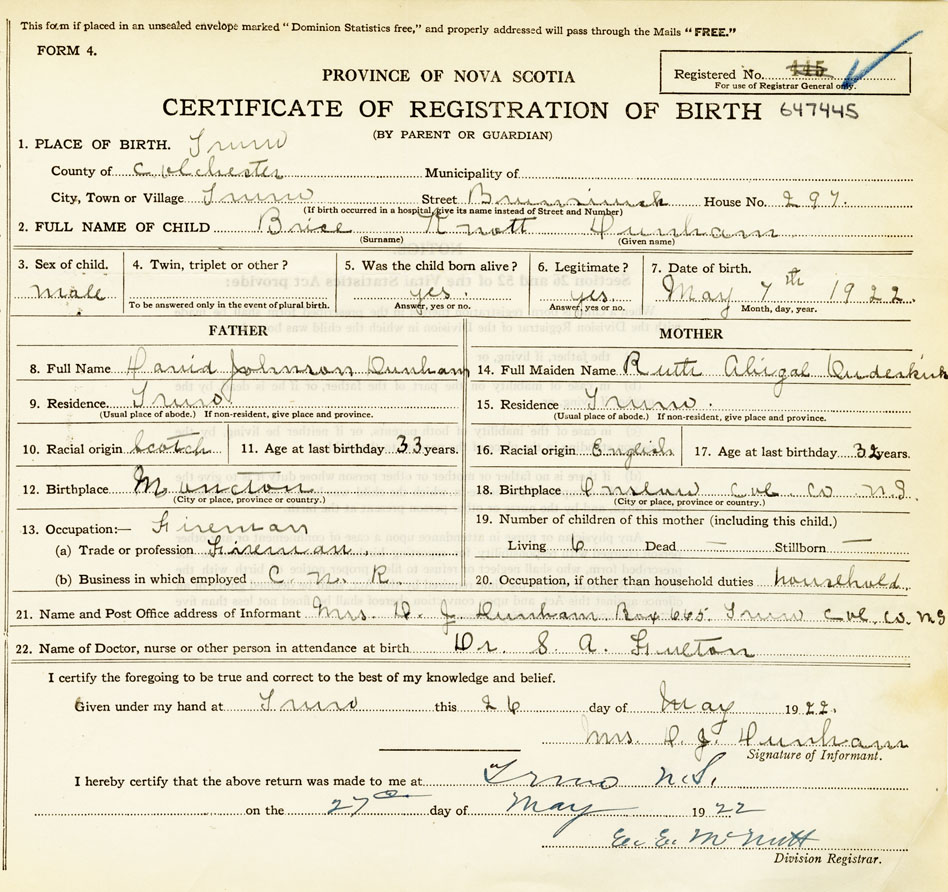 This form if placed in an unsealed envelope marked "Dominion Statistics free," and properly addressed will pass through the Mails "FREE."
FORM 4.
PROVINCE OF NOVA SCOTIA
Registered No. 445
For use of Registrar General only.
CERTIFICATE OF REGISTRATION OF BIRTH 647445
(BY PARENT OR GUARDIAN)
1. PLACE OF BIRTH. Truro
County of Colchester Municipality of
City, Town or Village Truro Street Brunswick House No. 297.
(If birth occurred in a hospital, give its name instead of Street and Number)
2. FULL NAME OF CHILD Brice Knott Dunham
(Surname) (Given name)
3. Sex of child. 4. Twin, triplet or other? 5. Was the child born alive? 6. Legitimate? 7. Date of birth.
male yes. yes May 7th 1922.
To be answered only in the event of plural birth. Answer, yes or no. Answer, yes or no. Month, day, year.
FATHER MOTHER
8. Full Name David Johnson Dunham 14. Full Maiden Name Ruth Abigal
9. Residence. Truro. 15. Residence Truro.
(Usual place of abode.) If non-resident, give place and province. (Usual place of abode.) If non-resident, give place and province.
10. Racial origin Scotch 11. Age at last birthday 33 years. 16. Racial origin English 17. Age at last birthday 32 years.
12. Birthplace Moncton 18. Birthplace Onslow Col. Co N.S.
(City or place, province or country.) (City or place, province or country.)
13. Occupation:— Fireman 19. Number of children of this mother (including this child.)
(a) Trade or profession Fireman Living 6 Dead — Stillborn —
(b) Business in which employed C. N. R. 20. Occupation, if other than household duties household.
21. Name and Post Office address of Informant Mrs. D. J. Dunham Box 665. Truro Col. Co. N S
22. Name of Doctor, nurse or other person in attendance at birth Dr. S. A. Fulton
I certify the foregoing to be true and correct to the best of my knowledge and belief.
Given under my hand at Truro this 26 day of May 1922.
Mrs. D. J. Dunham
Signature of Informant.
I hereby certify that the above return was made to me at Truro N.S.
on the 27th day of May 1922
E. E. McNutt
Division Registrar.